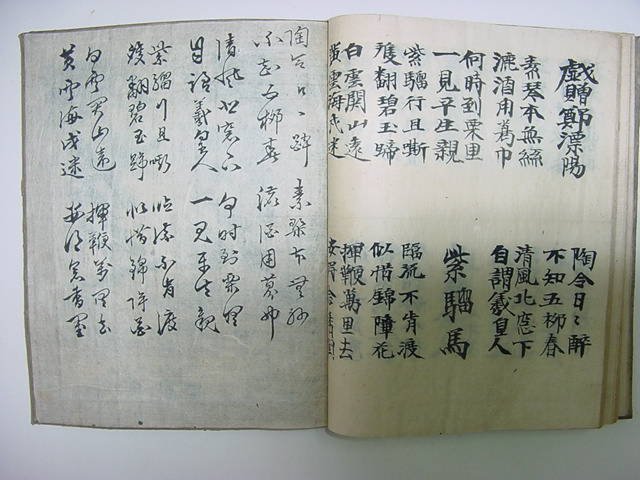 戯贈鄭溧陽
陶令日〻醉
不知五柳春
素琴本無絲
漉酒用葛巾
清風北窓下
自謂羲皇人
何時到栗里
一見平生親
紫騮馬
紫騮行且嘶
雙翻碧玉蹄
臨流不肯渡
似惜錦障花
白雲関山遠
黃雲海戍迷
揮鞭萬里去
安
陶令日〻醉
素琴本無絲
不知五柳春
漉酒用葛巾
清風北窓下
何時到栗里
自謂羲皇人
一見平生親
紫騮行且嘶
臨流不肯渡
雙翻碧玉蹄
似惜錦障
白雲関山遠
揮鞭萬里去
黄雲海戍迷